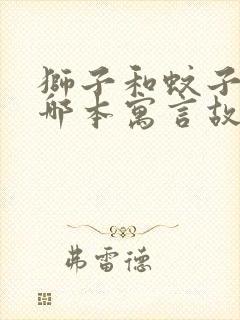 獅子和蚊子
哪本寓言故
弗雷德